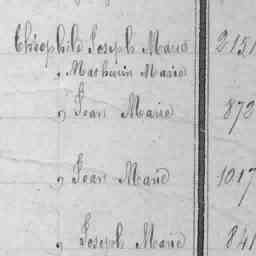 Théophile Joseph Marie 2151
„ Mathurin Marie
„ Jean Marie 873
„ Jean Marie 1017
„ Joseph Marie 841